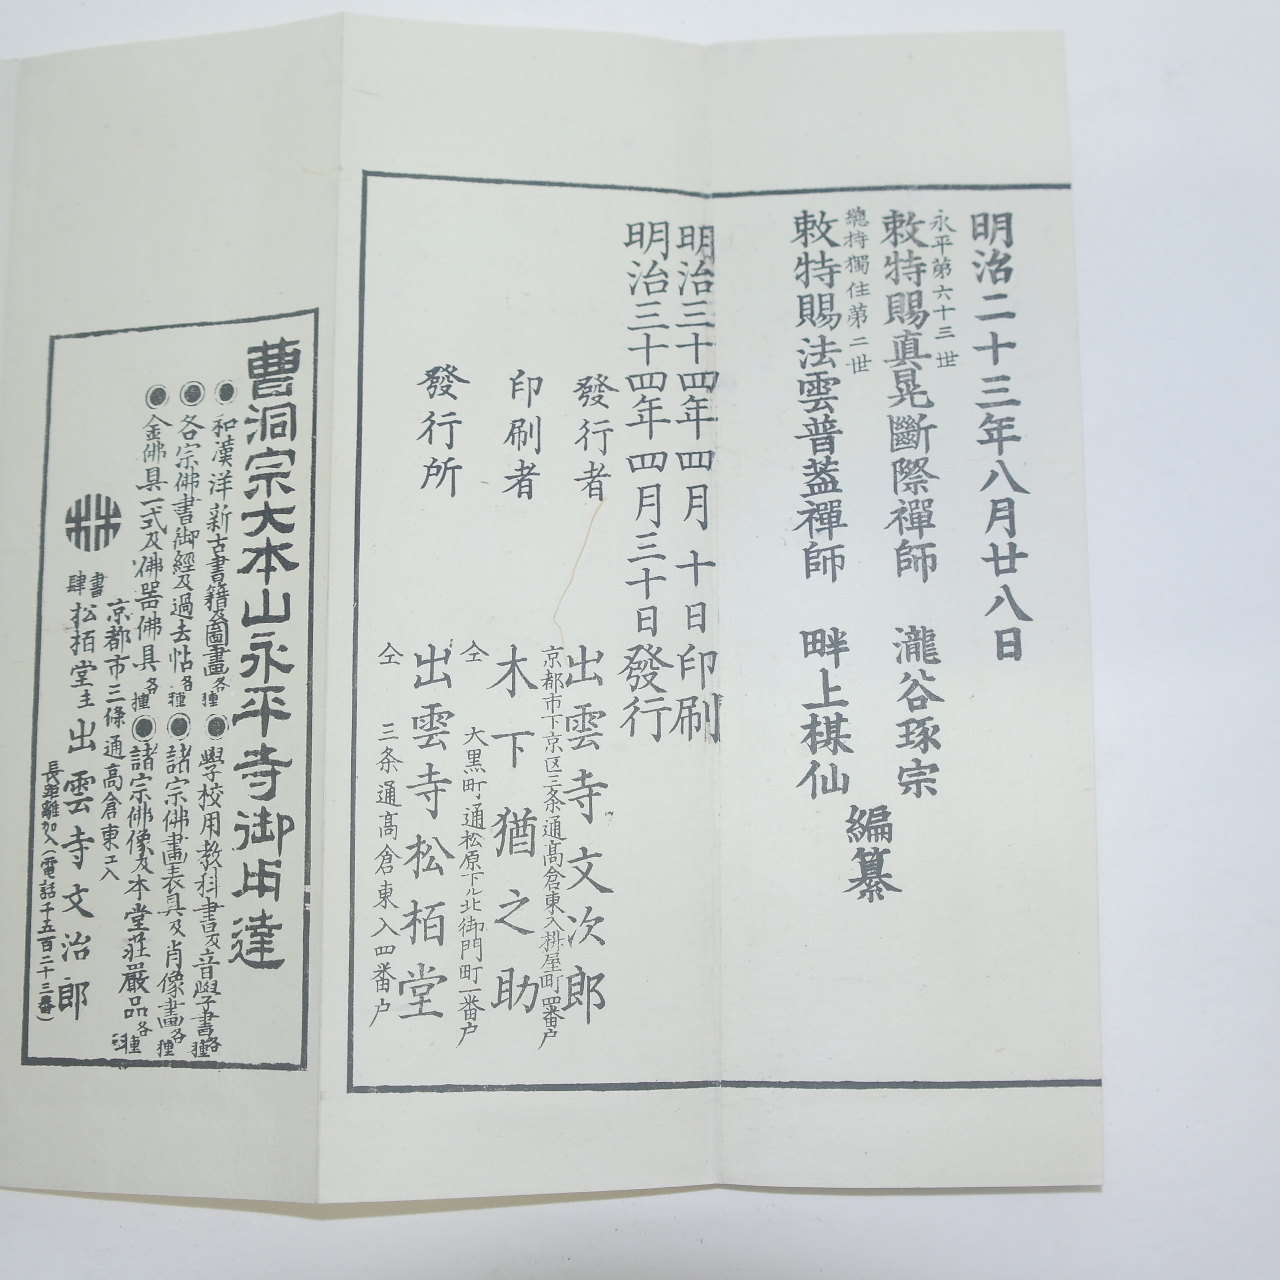 明治二十三年八月廿八日
永平第六十三世
敕特賜真晃斷際禪師 瀧谷琢宗
總持獨住第二世
敕特賜法雲普蓋禪師 畔上楳仙
編纂
明治三十四年四月十日印刷
明治三十四年四月三十日發行
發行者 出雲寺文次郎
京都市下京区三条通髙倉東入桝屋町四番戸
印刷者 木下猶之助
仝 大黒町通松原下ル北御門町一番戸
發行所 出雲寺松栢堂
仝 三条通髙倉東入四番戸
曹洞宗大本山永平寺御用達
●和漢洋新古書籍及圖畫各種●學校用教科書及音學書各種
●各宗佛書御經及過去帖各種●諸宗佛畫表具及肖像畫各種
●金佛具一式及佛器佛具各種●諸宗佛像及本堂莊嚴品各種
京都市三條通高倉東エ入
書肆 松栢堂主 出雲寺文治郎
長距離加入(電話千五百二十三番)